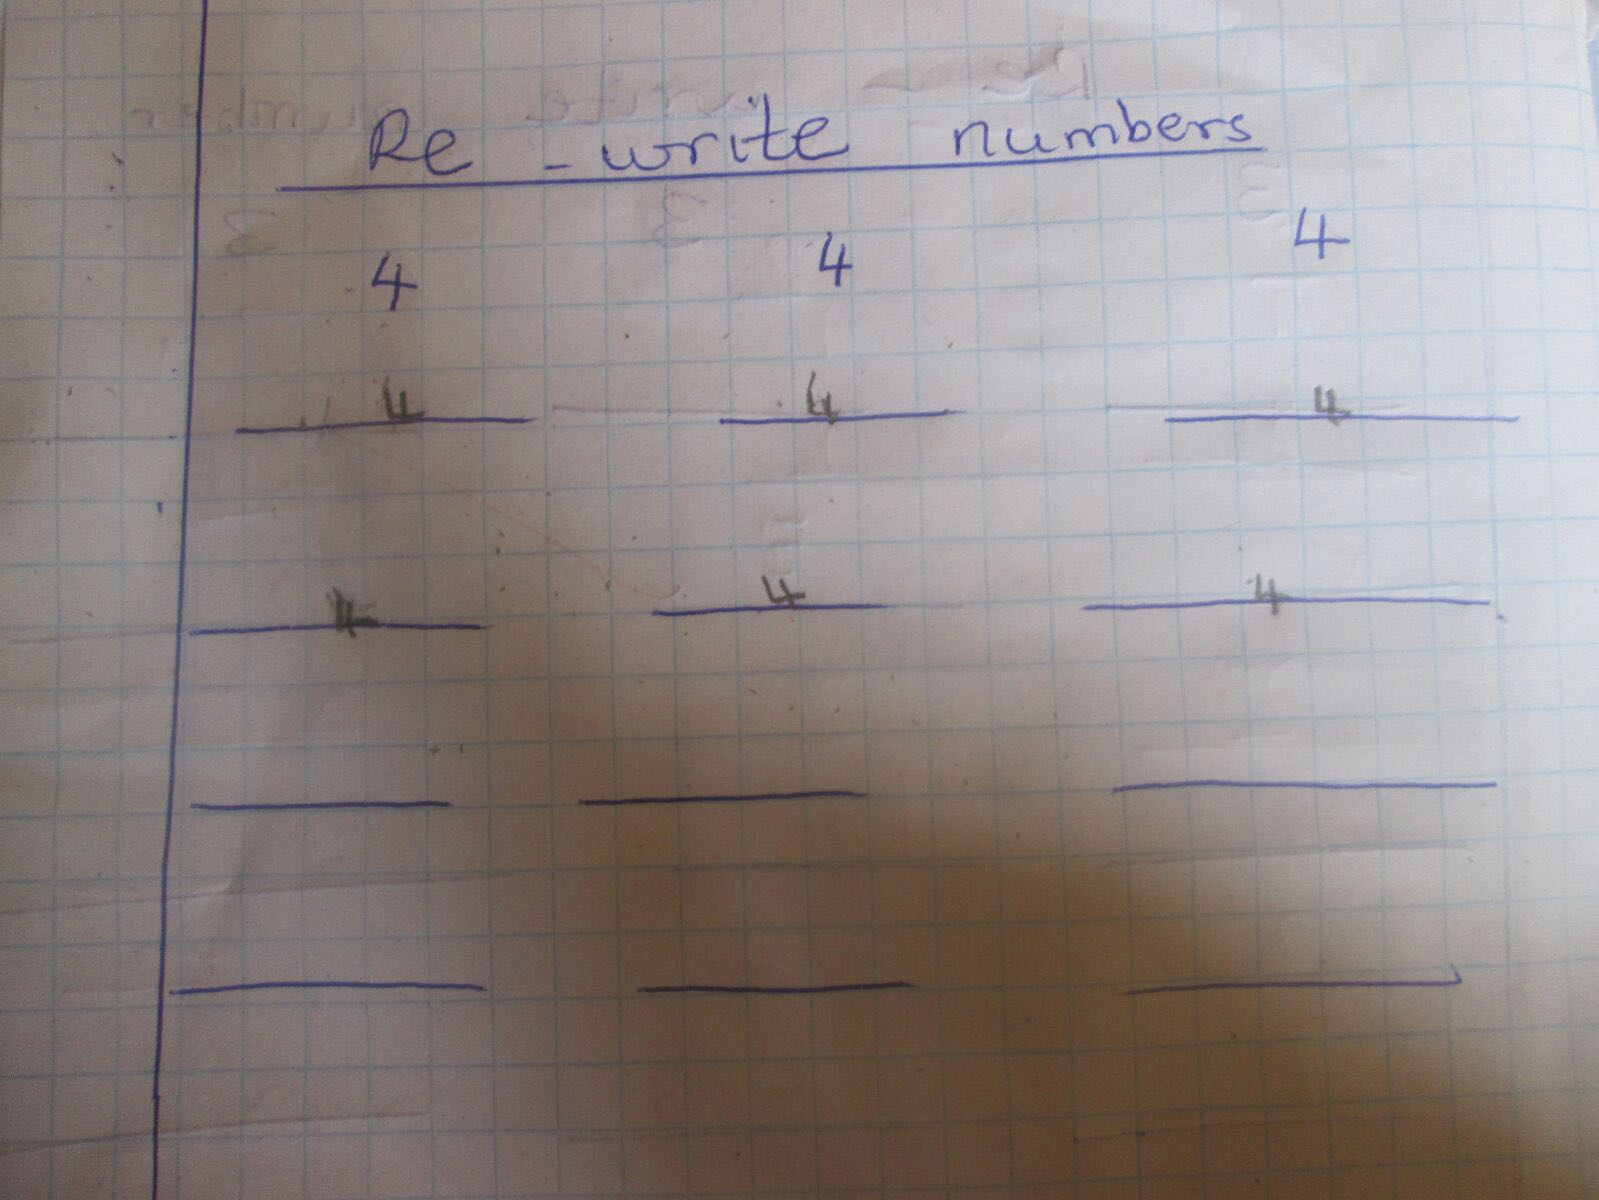 Re - write numbers
4 4 4
4 4 4
4 4 4